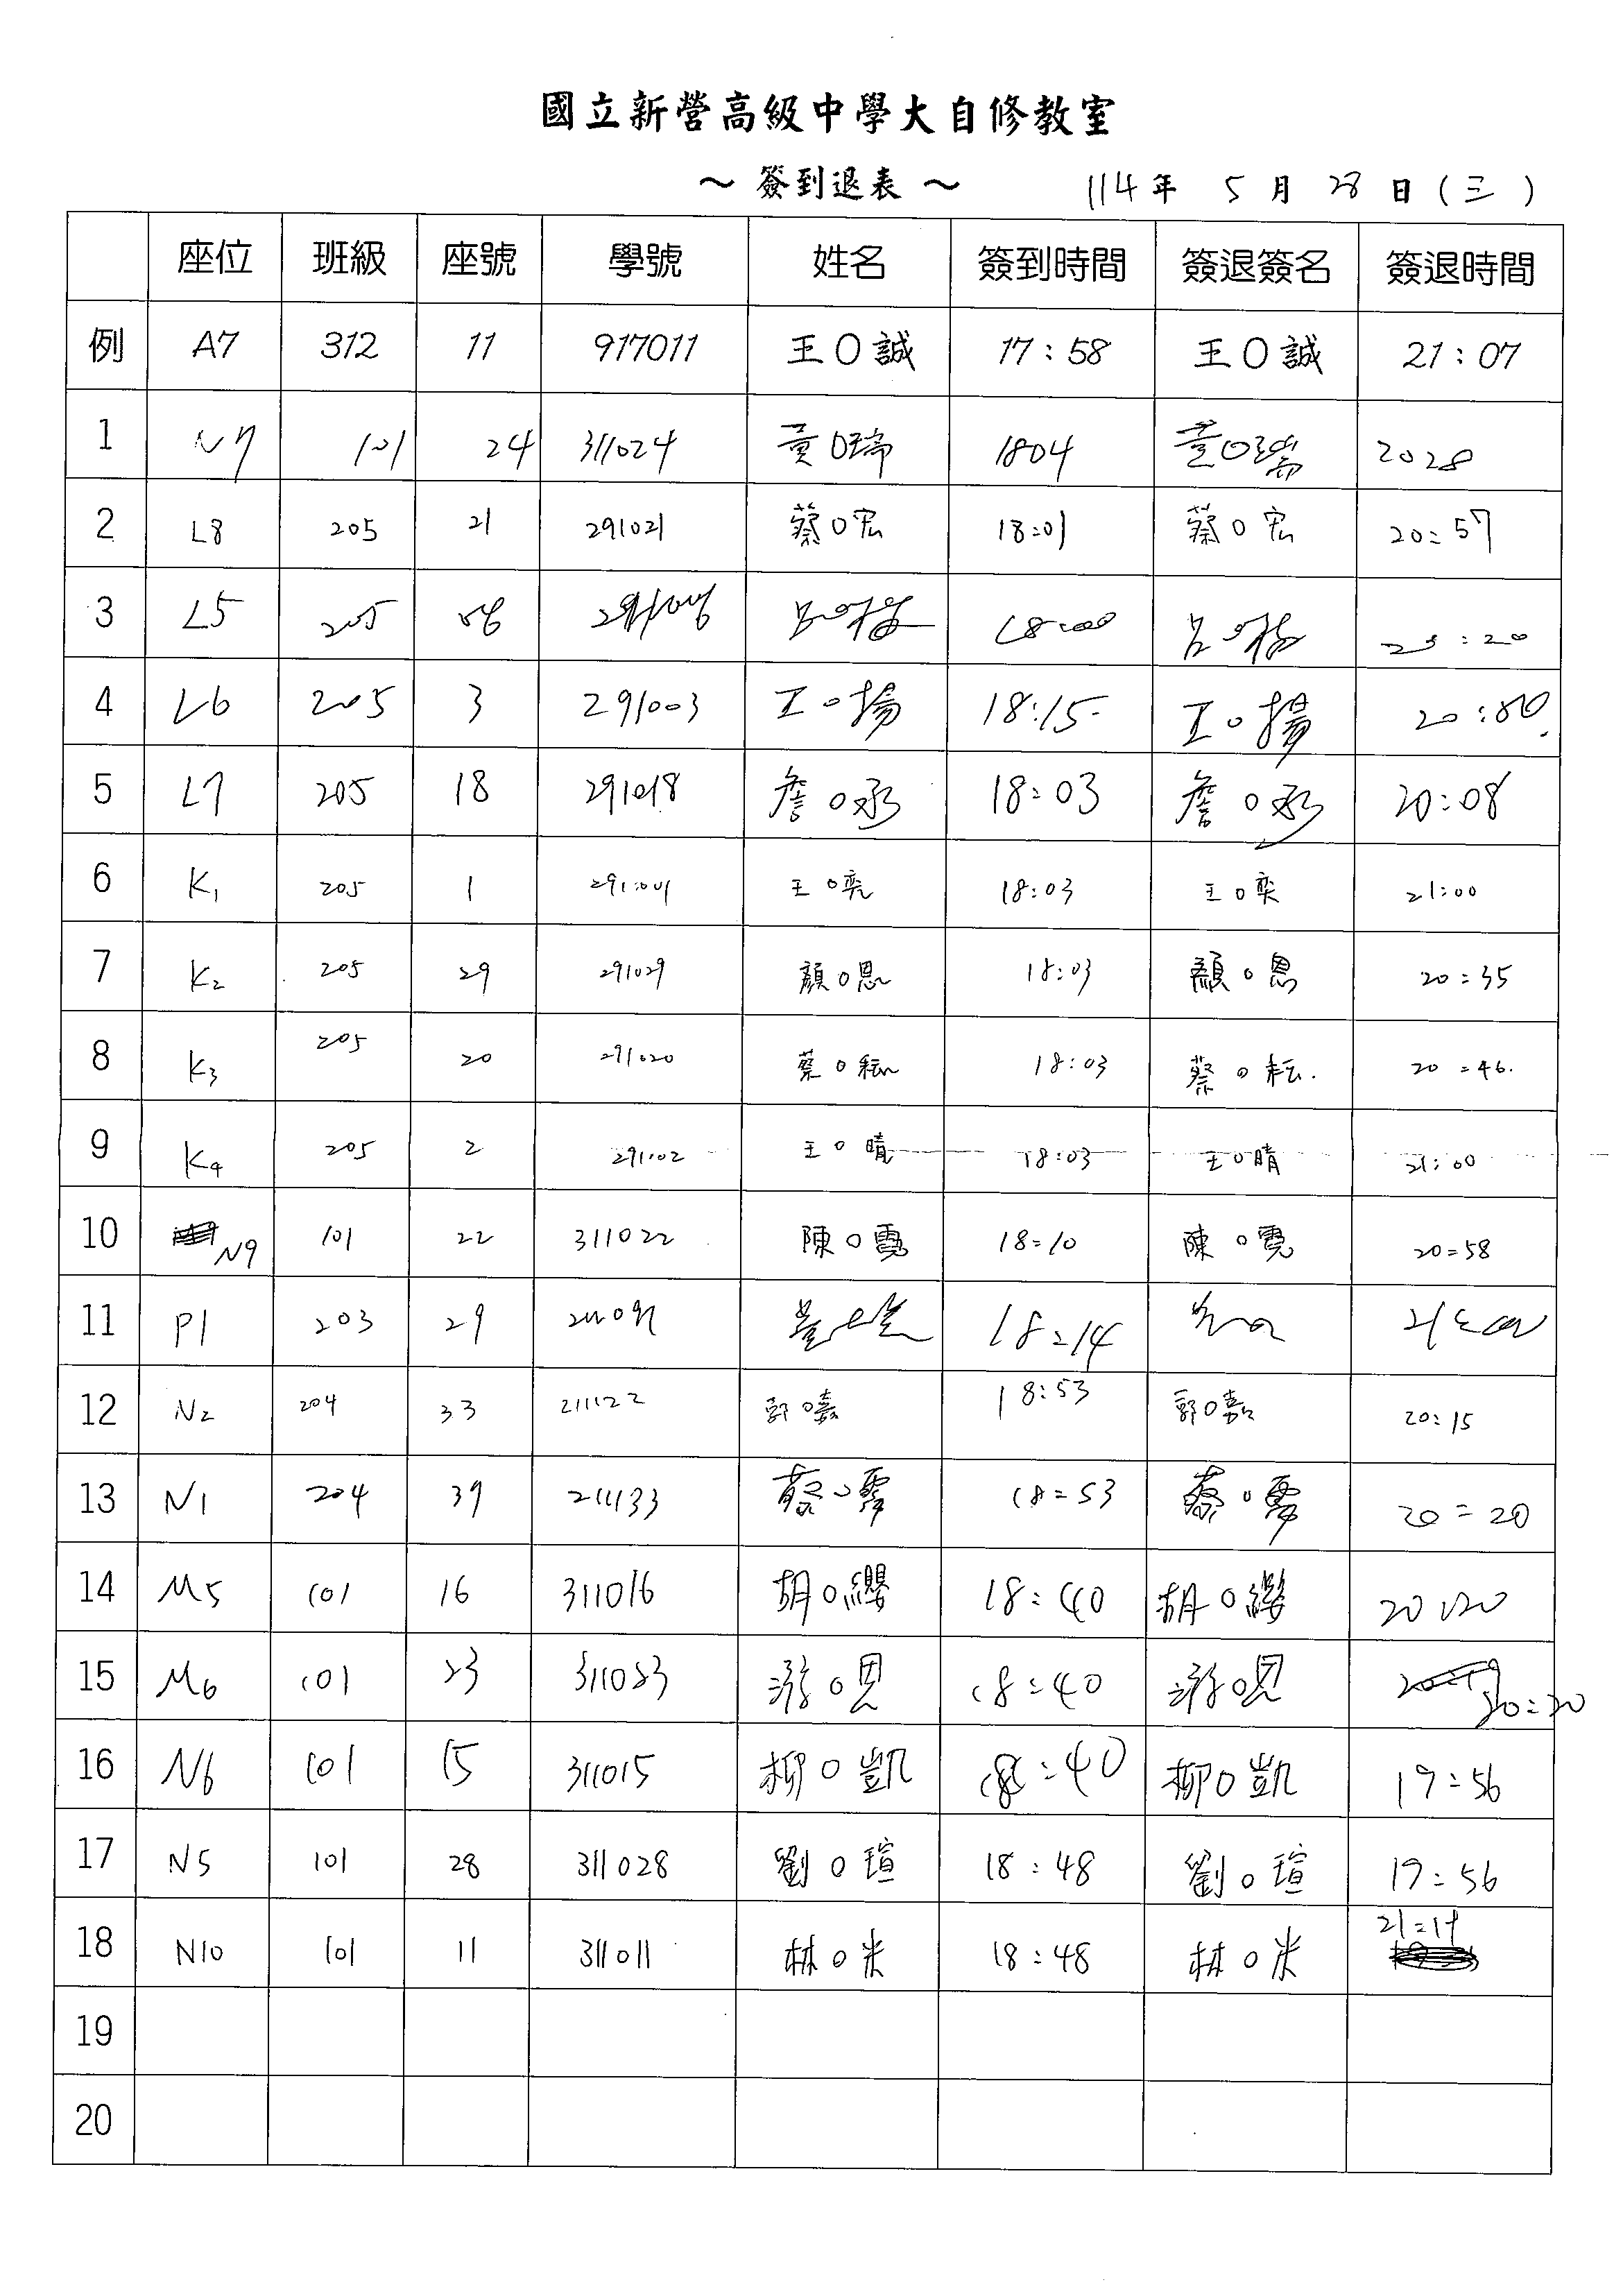 國立新營高級中學大自修教室
～ 簽到退表 ～ 114年 5月 28日(三)
座位 班級 座號 學號 姓名 簽到時間 簽退簽名 簽退時間
例 A7 312 11 917011 王〇誠 17:58 王〇誠 21:07
1 N7 101 24 311024 黃〇瑞 1804 黃〇瑞 2028
2 L8 205 21 291021 蔡〇宏 18:01 蔡〇宏 20:57
3 L5 205 呂〇 18:00 呂〇 :20
4 L6 205 3 291003 王〇揚 18:15 王〇揚 20:
5 L7 205 18 291018 詹〇丞 18:03 詹〇丞 20:08
6 K1 205 1 291001 王〇奕 18:03 王〇奕 21:00
7 K2 205 29 291029 顏〇恩 18:03 顏〇恩 20:35
8 K3 205 20 291020 蔡〇耘 18:03 蔡〇耘 20:46
9 K4 205 2 291002 王〇晴 18:03 王〇晴 21:00
10 N9 101 22 311022 陳〇霓 18:10 陳〇霓 20:58
11 P1 203 29 18:14
12 N2 204 33 211122 郭〇嘉 18:53 郭〇嘉 20:15
13 N1 204 39 211133 蔡〇霏 18:53 蔡〇霏 20:20
14 M5 101 16 311016 胡〇纓 18:40 胡〇纓 20:20
15 M6 101 23 311023 游〇恩 18:40 游〇恩 20:20
16 N6 101 15 311015 柳〇凱 18:40 柳〇凱 19:56
17 N5 101 28 311028 劉〇瑄 18:48 劉〇瑄 19:56
18 N10 101 11 311011 林〇米 18:48 林〇米 21:19
19
20